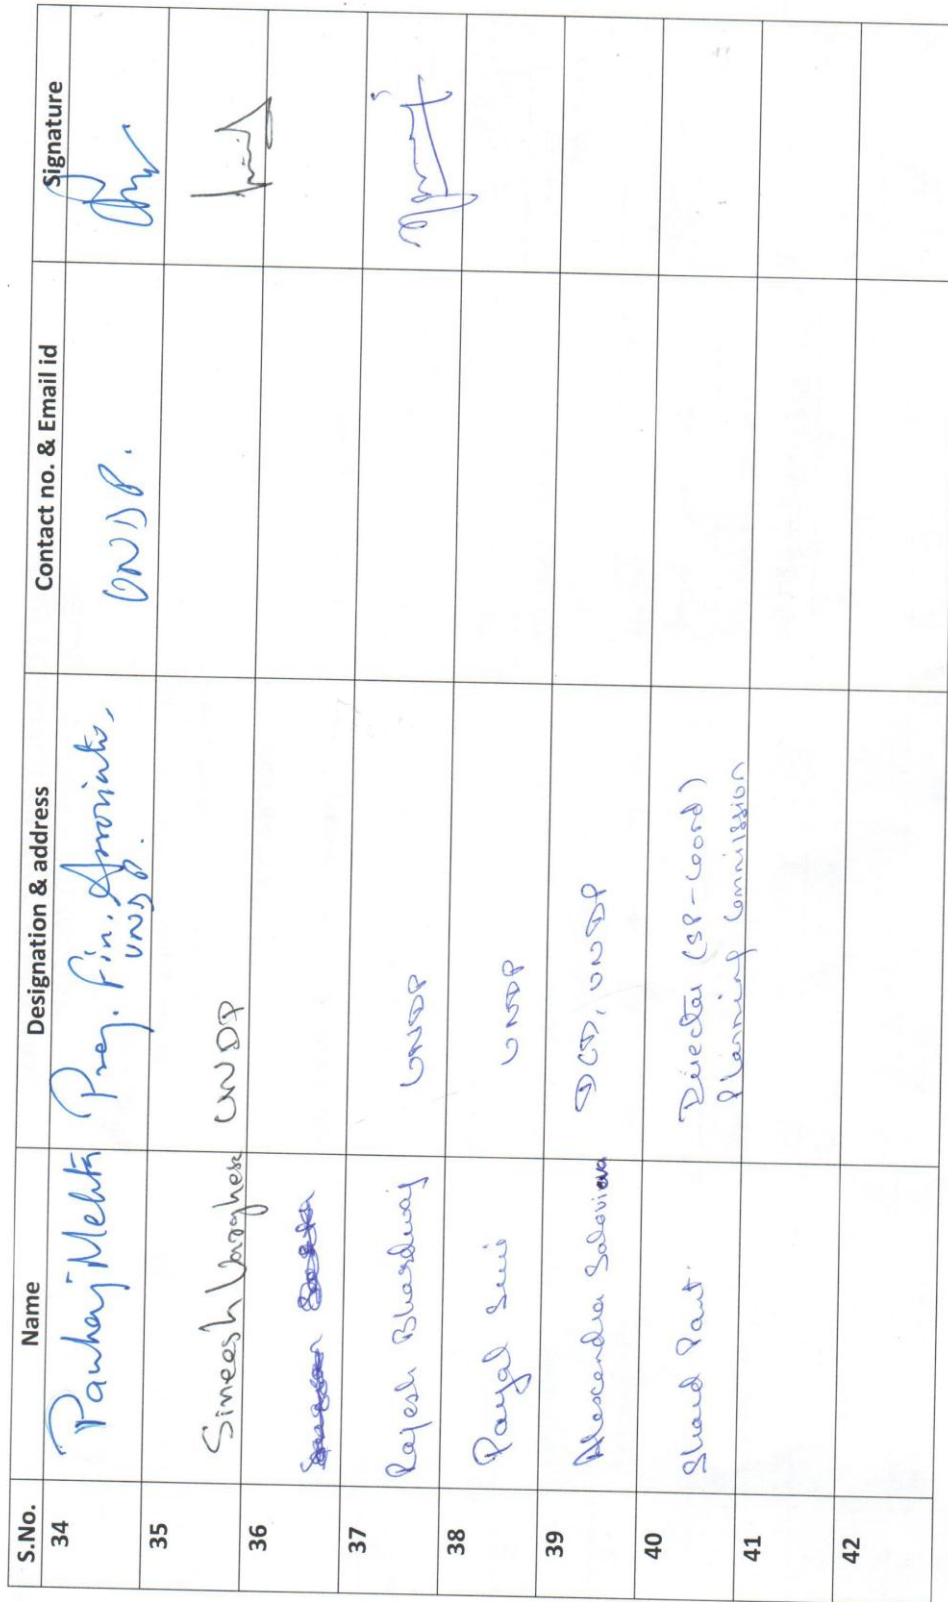 S.No. Name Designation & address Contact no. & Email id Signature
34 Pankaj Mehta Prog. Fin. Associate, UNDP.
UNDP.
35 Simeesh Varghese UNDP
36
37 Rajesh Bhardwaj UNDP
38 Payal UNDP
39 Alexandra Solovieva DCD, UNDP
40 Sharad Pant. Director (SP-Coord)
Planning Commission
41
42